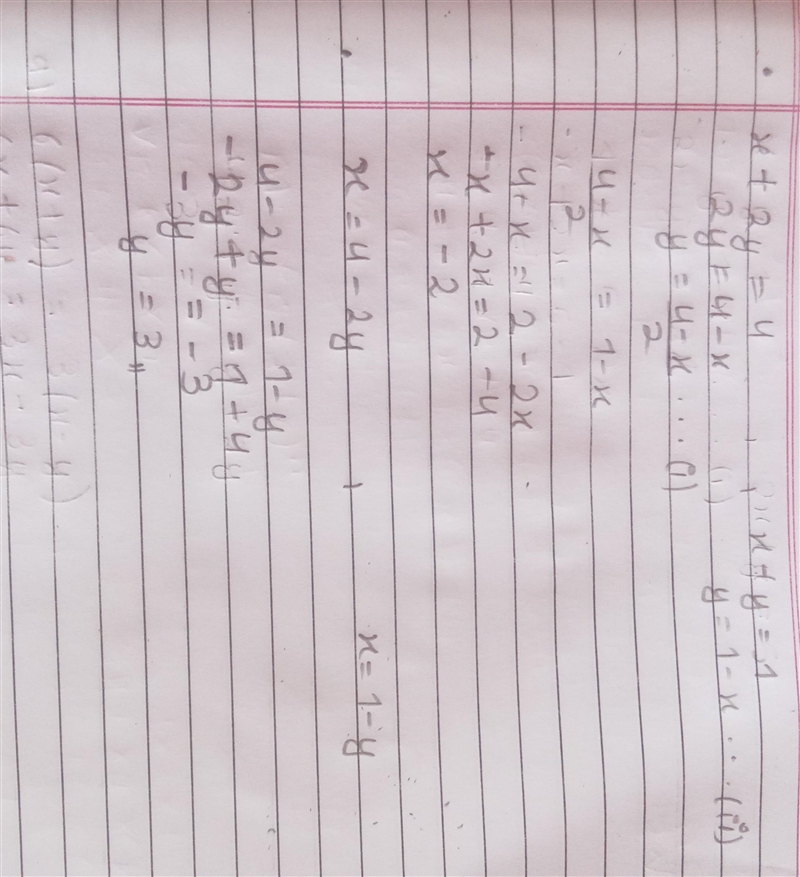 x + 2y = 4 , x + y = 1
2y = 4 - x y = 1 - x ... (ii)
y = 4 - x / 2 ... (i)
4 + x / 2 = 1 - x
4 + x = 2 - 2x
+x + 2x = 2 - 4
x = -2
x = 4 - 2y , x = 1 - y
4 - 2y = 1 - y
-2y + y = 1 + 4y
-3y = -3
y = 3 //
6(x + y) = 3(x - y)